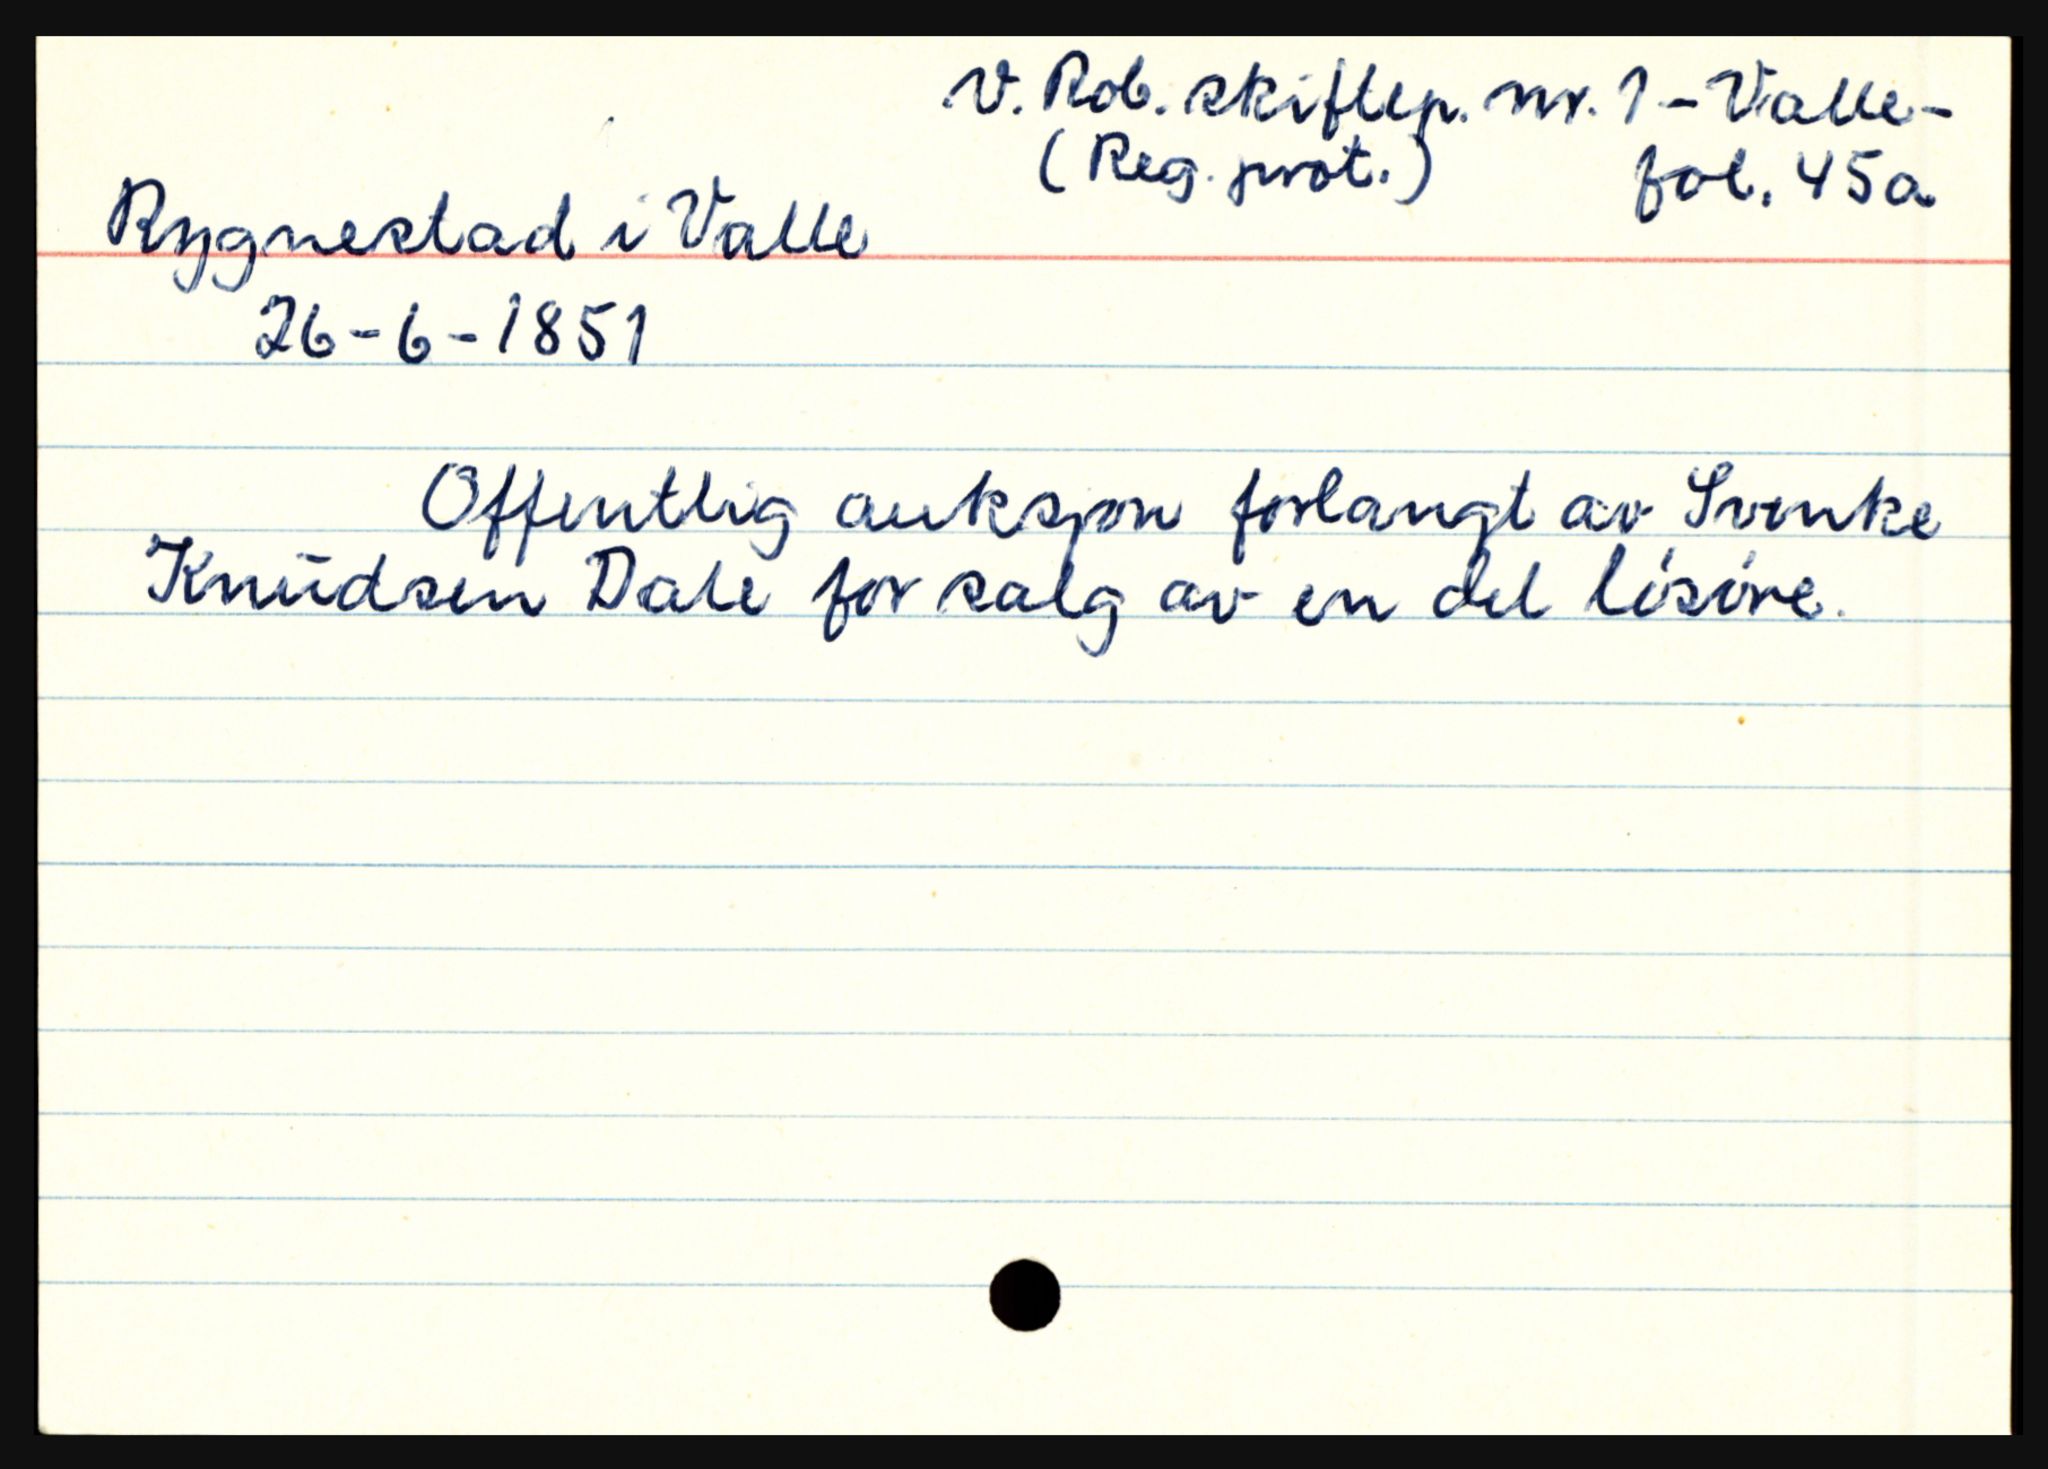 V. Rob. skiftep. nr. 1 - Valle -
(Reg. prot.) fol. 45a
Rygnestad i Valle
26-6-1851
Offentlig auksjon forlangt av Svenke
Knudsen Dale for salg av en del lösöre.